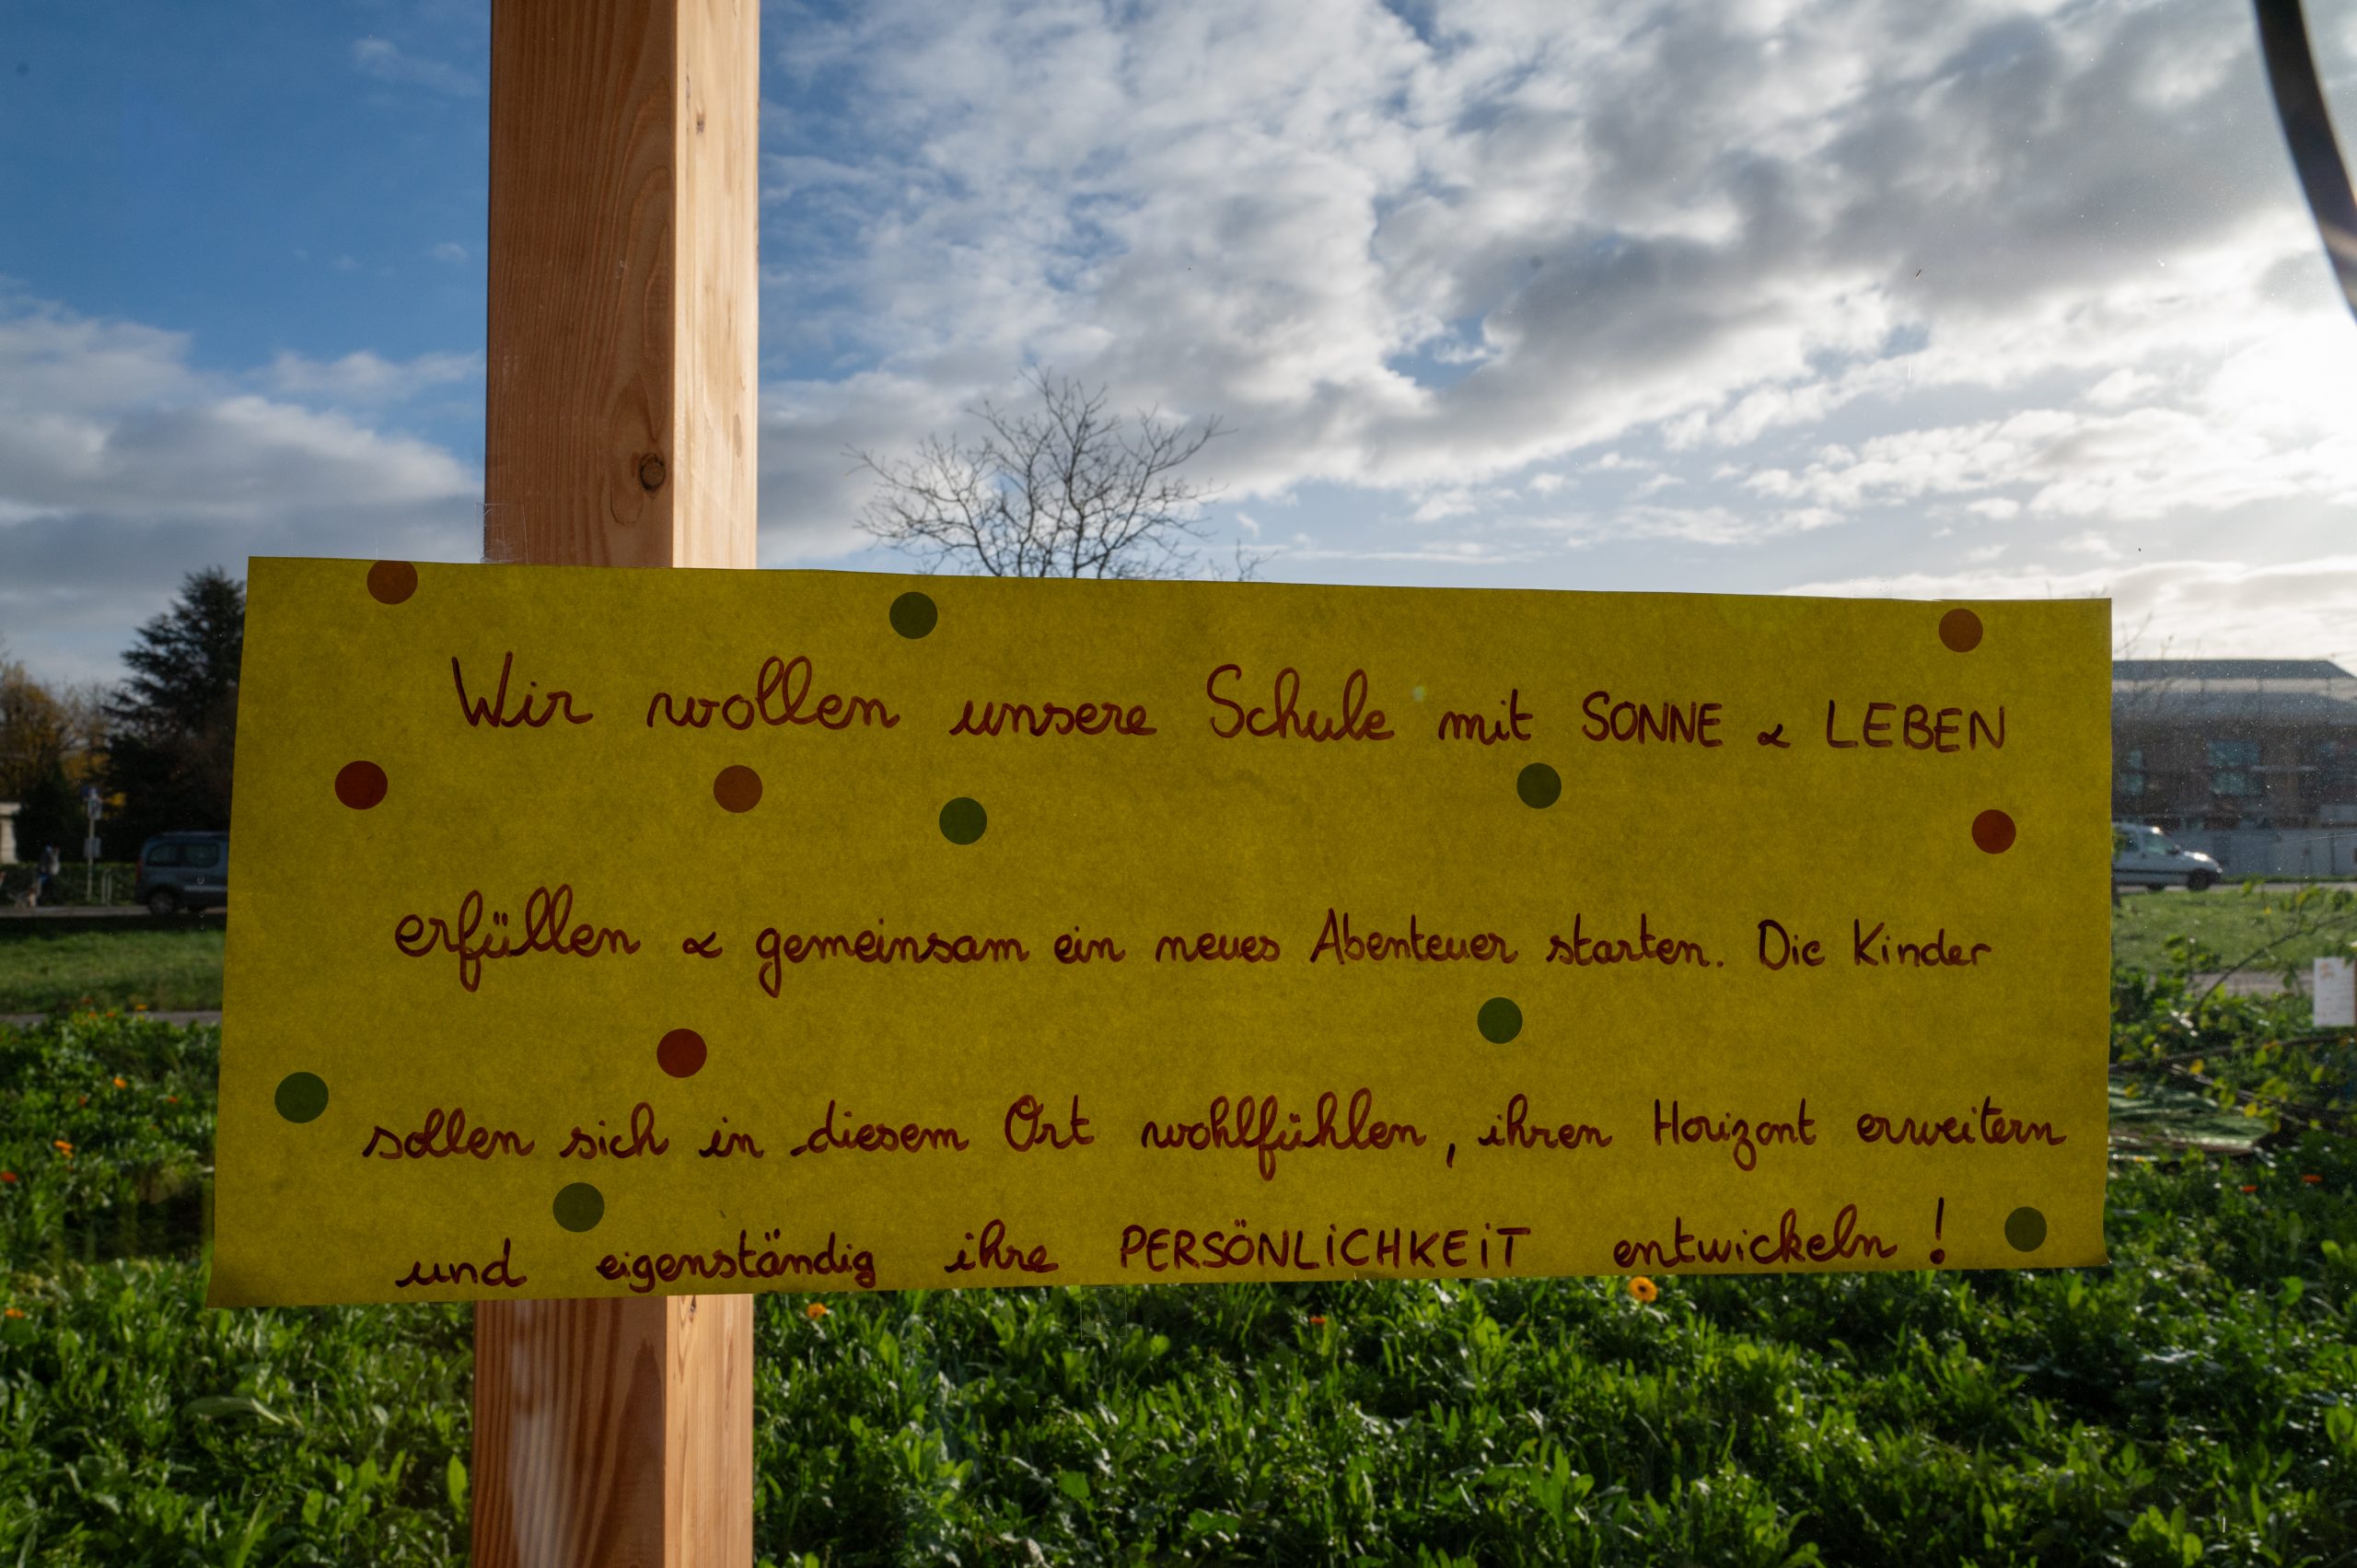 Wir wollen unsere Schule mit SONNE & LEBEN
erfüllen & gemeinsam ein neues Abenteuer starten. Die Kinder
sollen sich in diesem Ort wohlfühlen, ihren Horizont erweitern
und eigenständig ihre PERSÖNLICHKEIT entwickeln!